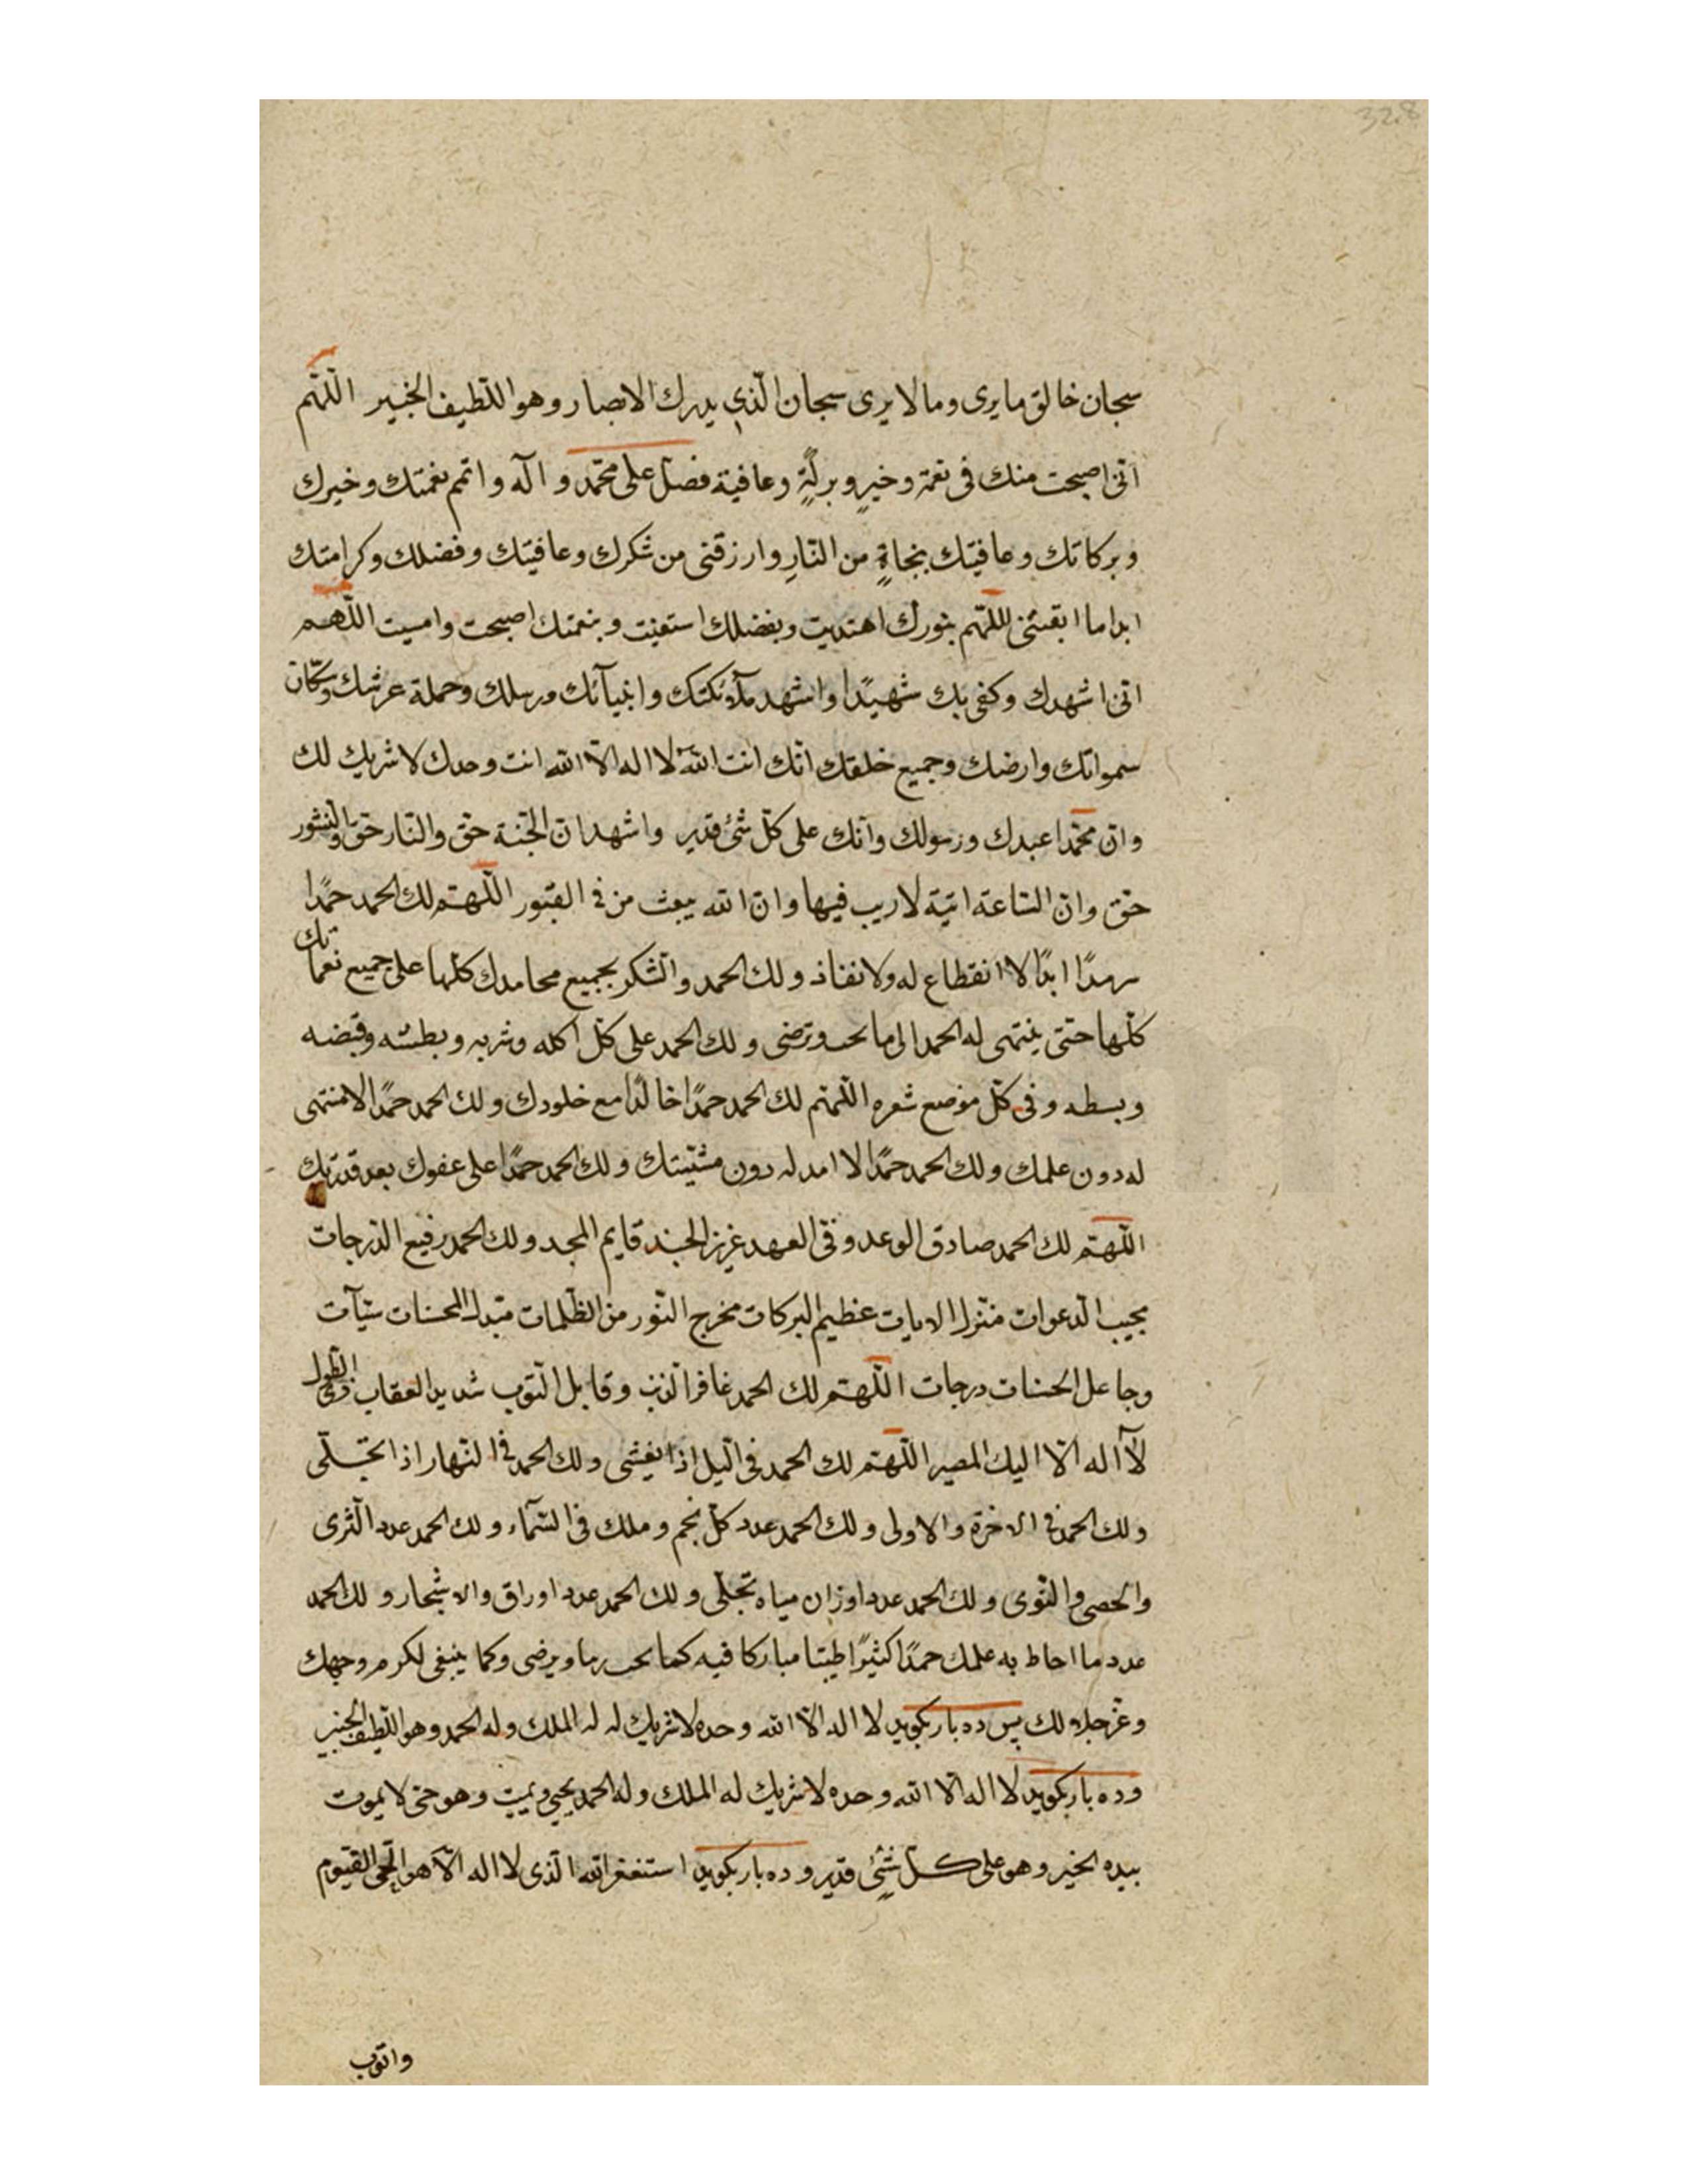 328
سبحان خالق ما يرى وما لا يرى سبحان الّذي يدرك الابصار وهو اللّطيف الخبير اللّهمّ
انّى اصبحت منك فى نعمة وخيرٍ وبركةٍ وعافية فصلّ على محمّد و آله و اتمم نعمتك وخيرك
وبركاتك وعافيتك بنجاةٍ من النّارِ وارزقنى من شكرك وعافيتك وفضلك وكرامتك
ابدا ما ابقيتنى اللّهمّ بنورك اهتديت وبفضلك استغنيت وبنعمتك اصبحت وامسيت اللّهم
انّى اشهدك وكفى بك شهيدًا واشهد ملائكتك وانبيآئك ورسلك وحملة عرشك وسكّان
سمواتك وارضك وجميع خلقك انّك انت اللّه لا اله الّا الله انت وحدك لا شريك لك
وانّ محمّدا عبدك ورسولك وانّك على كلّ شئ قدير واشهد انّ الجنّة حقّ والنّار حقّ والنّشور
حقّ وانّ السّاعة اتية لا ريب فيها وانّ الله يبعث من فى القبور اللّهمّ لك الحمد حمدًا
سرمدًا ابدًا لا انقطاع له ولا نفاذ ولك الحمد والشّكر بجميع محامدك كلّها على جميع نعمائك
كلّها حتّى ينتهى له الحمد الى ما تحب وترضى ولك الحمد على كلّ اكله وشربه وبطشه وقبضه
وبسطه وفى كلّ موضع شعره اللّهمّ لك الحمد حمدًا خالدًا مع خلودك ولك الحمد حمدًا لا منتهى
له دون علمك ولك الحمد حمدًا لا امد له دون مشيّتك ولك الحمد حمدًا على عفوك بعد قدرتك
اللّهمّ لك الحمد صادق الوعد وفّى العهد عزيز الجند قايم المجد ولك الحمد رفيع الدّرجات
مجيب الدّعوات منزل الايات عظيم البركات مخرج النّور من الظّلمات مبّدل الحسنات سيّآت
وجاعل الحسنات درجات اللّهمّ لك الحمد غافر الذّنب وقابل التّوب شديد العقاب ذى الطّول
لآ اله الّا اليك المصير اللّهمّ لك الحمد فى الّيل اذا يغشى ولك الحمد فى النّهار اذا تجّلّى
ولك الحمد فى الاخرة والاولى ولك الحمد عدد كلّ نجم وملك فى السّمآء ولك الحمد عدد الثّرى
والحصى والنّوى ولك الحمد عدد اوزان مياه تجلّى ولك الحمد عدد اوراق والاشجار ولك الحمد
عدد ما احاط به علمك حمدًا كثيرًا طيّبا مباركا فيه كما تحب ربنا ويرضى وكما ينبغى لكرم وجهك
وعزّ جلالك پس ده بار بكويد لا اله الّا الله وحده لا شريك له له الملك وله الحمد وهو اللّطيف الخبير
وده بار بكويد لا اله الّا الله وحده لا شريك له الملك وله الحمد يحيي ويميت وهو حىّ لا يموت
بيده الخير وهو على كلّ شئٍ قدير وده بار بكويد استغفر الله الّذى لا اله الّا هو الحىّ القيّوم
واتوب